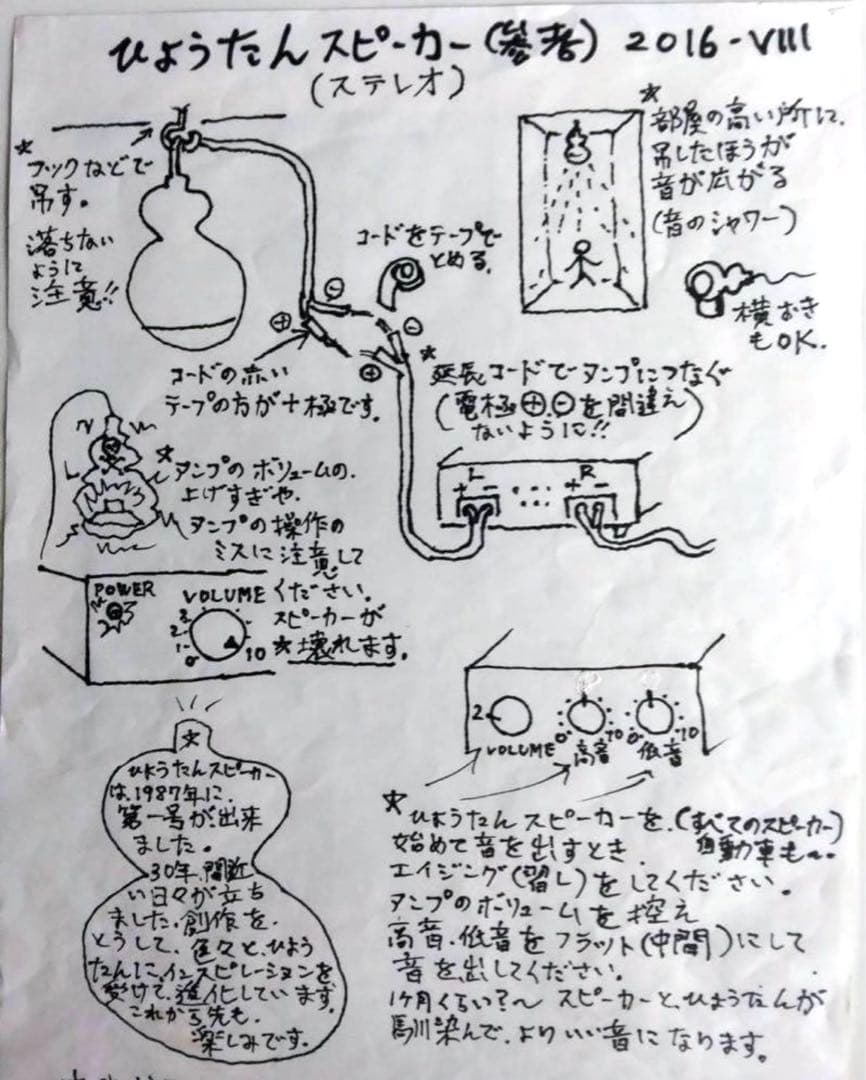 ひょうたんスピーカー(参考) 2016-VIII
(ステレオ)
★
フックなどで
吊す。
落ちない
ように
注意!!
コードをテープで
とめる。
★
部屋の高い所に、
吊したほうが
音が広がる
(音のシャワー)
横おき
もOK.
⊖
⊕
⊖
⊕
コードの赤い
テープの方が+極です。
★
延長コードでアンプにつなぐ
(電極⊕.⊖を間違え
ないように!!)
L R
+ - + -
★
アンプのボリュームの、
上げすぎや、
アンプの操作の
ミスに注意して
ください。
スピーカーが
★壊れます。
POWER
VOLUME
3
2
1
0
10
2
VOLUME
0 10
高音
0 10
低音
★
ひょうたんスピーカー
は、1987年に、
第一号が、出来
ました。
30年、間近
い日々が立ち
ました。創作を、
とうして、色々と、ひょう
たんに、インスピレーションを
受けて、進化しています。
これから先も、
楽しみです。
★
ひょうたんスピーカーを、(すべてのスピーカー)
自動車も〜
始めて音を出すとき、
エイジング(習し)をしてください。
アンプのボリュームを控え
高音、低音をフラット(中間)にして
音を出してください。
1ヶ月くらい?〜 スピーカーと、ひょうたんが
馴染んで、よりいい音になります。